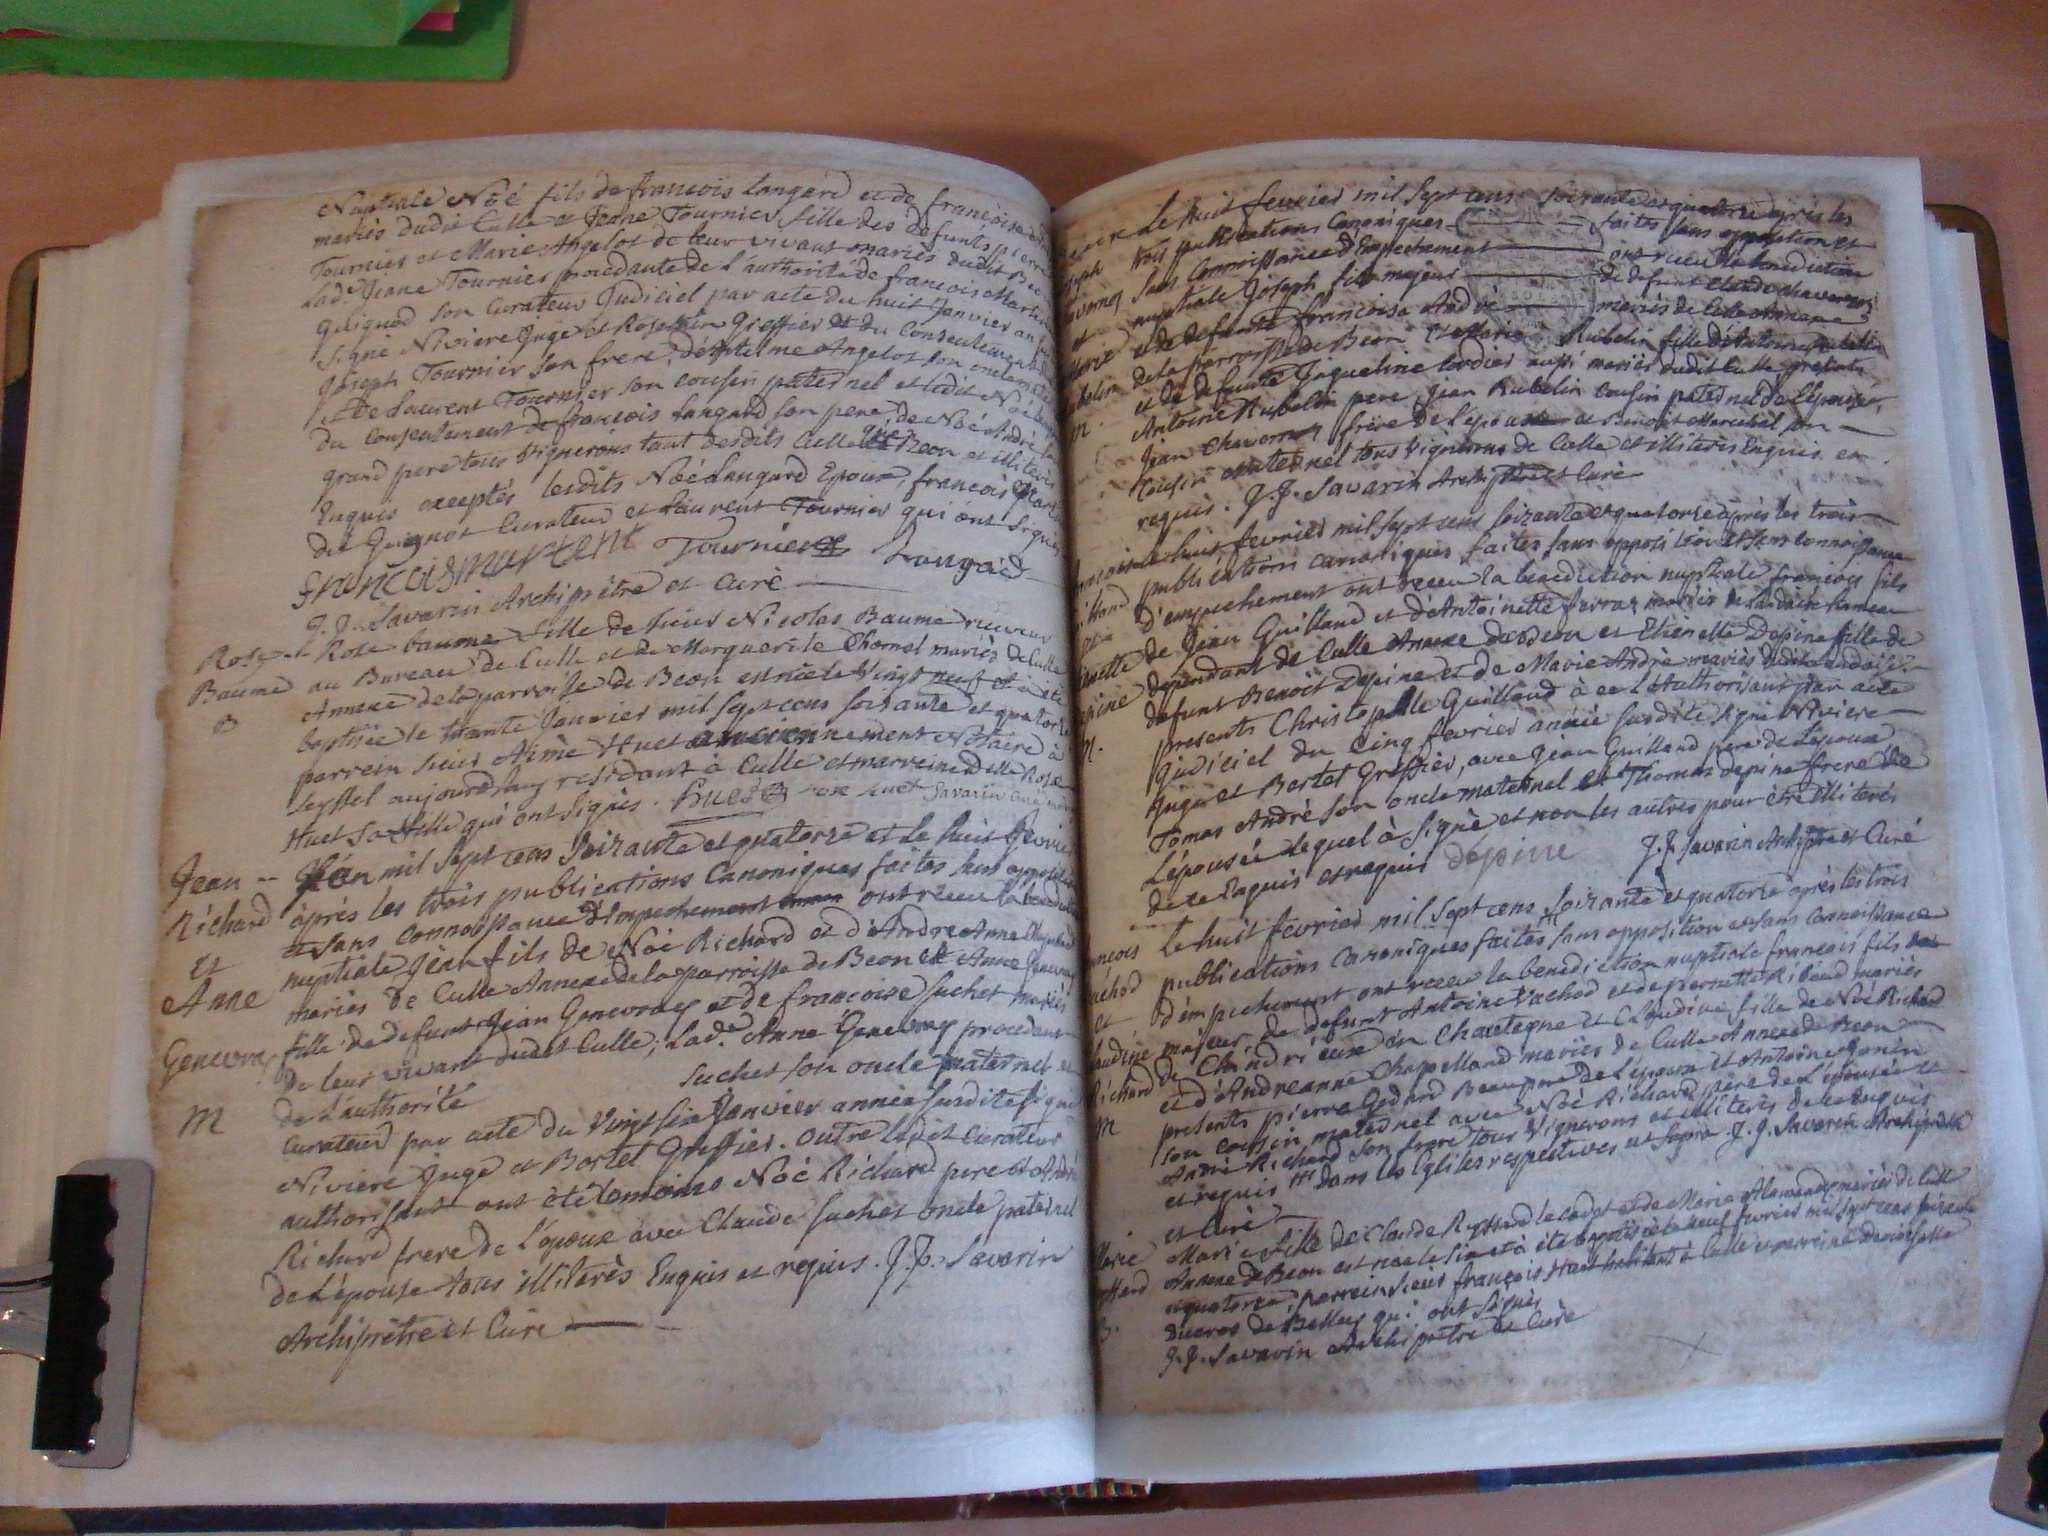 Nuptiale Noé fils de francois Longard et de françoise
mariés dudit Culle et Jeane Tournier fille des defunts pierre
Tournier et Marie Angelot de leur vivant mariés dudit
Lad.e Jeane Tournier procedante de l'authorité de francois Marten
Guignod son Curateur Judiciel par acte du huit Janvier
Signé Niviere Juge et Greffier et du Consentement de
Joseph Tournier son frere, d'Antelme Angelot son oncle
de Laurent Tournier son cousin paternel et ledit Noé
du consentement de francois Longard son pere, de Noé André
grand pere tous vignerons tant desdits Culle que Beon et illiterés
Enquis exceptés lesdits Noé Longard Epoux, francois Marten
dit Guignot Curateur et Laurent Tournier qui ont signés
francois marten Tournier Longard
J. J. Savarin Archiprêtre et Curé
Rose Rose baume fille de sieur Nicolas Baume receveur
Baume au Bureau de Culle et de Marguerite Chomel mariés de Culle
B Annexe de la parroisse de Beon est née le Vingt neuf et à été
baptisée le trante Janvier mil sept cens soixante et quatorze
parrein sieur Aimé Huet anciennement Notaire à
Seyssel aujourdhuy residant à Culle et marreine delle Rose
Huet sa fille qui ont signés. Huet rose huet Savarin
Jean L'an mil sept cens soixante et quatorze et le huit fevrier
Richard après les trois publications Canoniques faites sans opposition
et sans connoissance d'Empechement ont receu la benediction
Anne nuptiale Jean fils de Noé Richard et d'AndreAnne
mariés de Culle Annexe de la parroisse de Beon et Anne Genevray
Genevray fille de defunt Jean Genevray et de francoise suchet mariés
de leur vivant dudit Culle; Lad.e Anne Genevray procedant
M de l'authorité suchet son oncle maternel et
Curateur par acte du Vingt six Janvier année susdite signé
Niviere Juge et Bortet Greffier. outre ledit Curateur
authorisant ont été temoins Noé Richard pere et André
Richard frere de l'époux avec Claude suchet oncle paternel
de l'épouse tous illiterés Enquis et requis. J. J. Savarin
Archiprêtre et Curé
Le huit fevrier mil sept cens soixante et quatorze après les
trois publications Canoniques faites sans opposition et
sans Connoissance d'Empechement ont receu la benediction
nuptiale Joseph fils majeur de defunt Claude chavornoz
et de defunte francoise André mariés de Culle Annexe
Marie de la parroisse de Beon et Marie Rubelin fille d'Antoine Rubelin
et de defunte Jaqueline tardier aussi mariés dudit Culle presents
M. Antoine Rubelin pere, Jean Rubelin cousin paternel de l'épouse,
Jean chavornoz frere de l'epoux et Benoit Marechal son
cousin maternel tous vignerons de Culle et illiterés Enquis et
requis. J. J. Savarin Archiprêtre et Curé
le huit fevrier mil sept cens soixante et quatorze après les trois
publications canoniques faites sans opposition et sans connoissance
d'empechement ont receu la benediction nuptiale francois fils
de Jean Guilland et d'Antoinette ferraz mariés de hameau
dependant de Culle Annexe de Beon et Etienette Depine fille de
defunt Benoit Depine et de Marie André mariés dudit
M. presents Christophle Guilland à ce l'Authorisant par acte
Judiciel du Cinq fevrier année susdite signé Niviere
Juge et Bortet Greffier, avec Jean Guilland pere de l'epoux
Tomas André son oncle maternel et Thomas depine frere de
l'épousée lequel à signé et non les autres pour être illiterés
de ce Enquis et requis depine J. J. Savarin Archiprêtre et Curé
Le huit fevrier mil sept cens soixante et quatorze après les trois
publications Canoniques faites sans opposition et sans Connoissance
et d'empechement ont receu la benediction nuptiale francois fils
majeur de defunt Antoine Vachod et de pierrette Ribaud mariés
Richard de Chindrieux en Chautagne et Claudine fille de Noé Richard
et d'Andreanne Chapelland mariés de Culle Annexe de Beon
M presents pierre Godard Beaupere de l'époux et Antoine Janin
son cousin maternel avec Noé Richard père de l'épousée et
André Richard son frere tous vignerons et illiterés de ce Enquis
et requis dans les Eglises respectives ut supra J. J. Savarin Archiprêtre
et Curé
Marie Marie fille de Claude Ryttard le cadet et de Marie mariés de Culle
Annexe de Beon est née le six et à été baptisée le neuf fevrier mil sept cens soixante
et quatorze; parrein sieur françois Huet habitant à Culle et marreine Demoiselle
B. Ducros de Belley qui ont signés
J. J. Savarin Archiprêtre et Curé